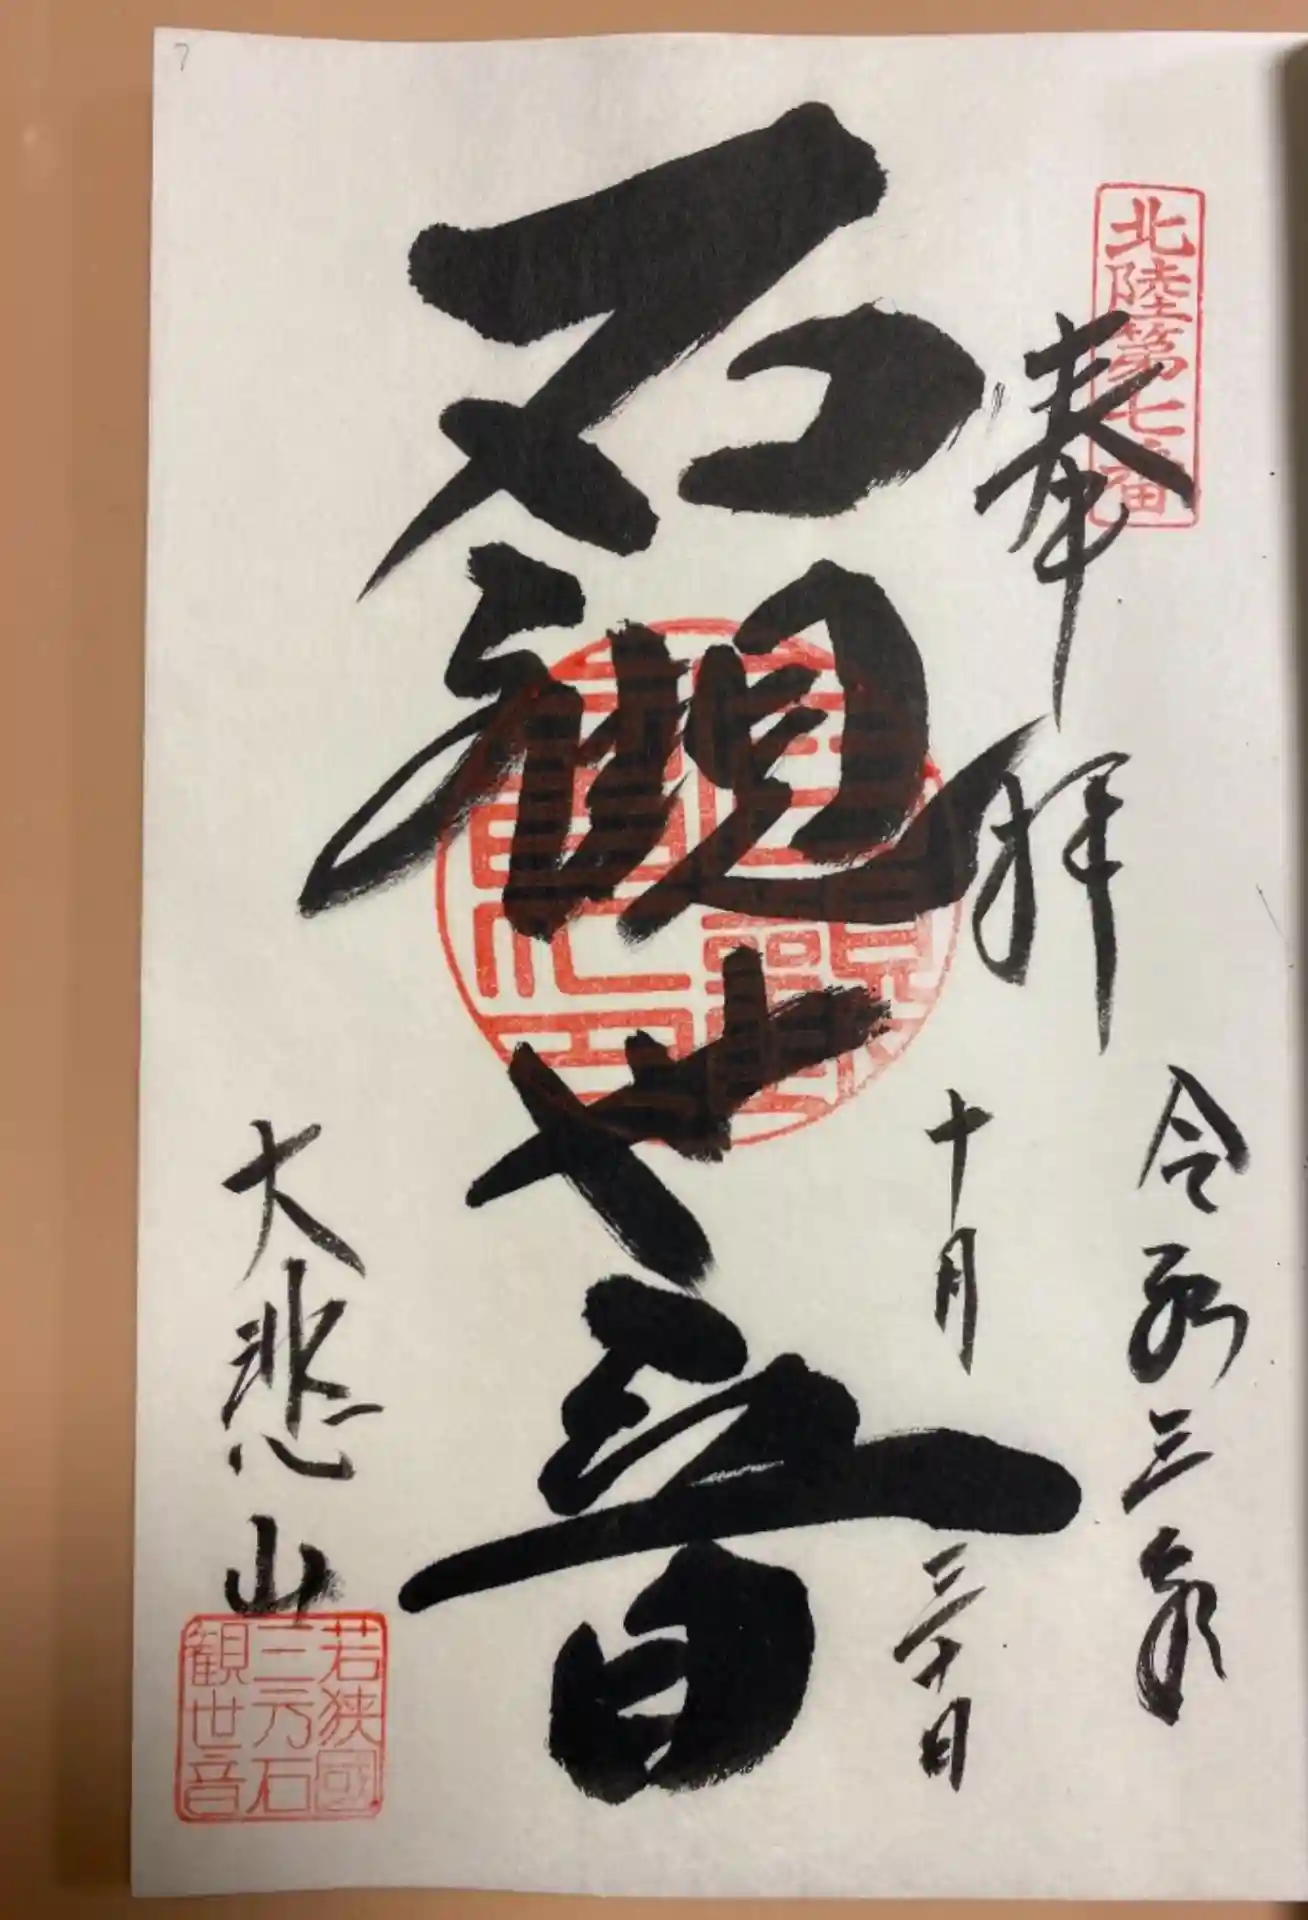 7
北陸第七番
奉拝
令和三年
十月三十日
石観世音
大悲山
若狭國
三方石
観世音